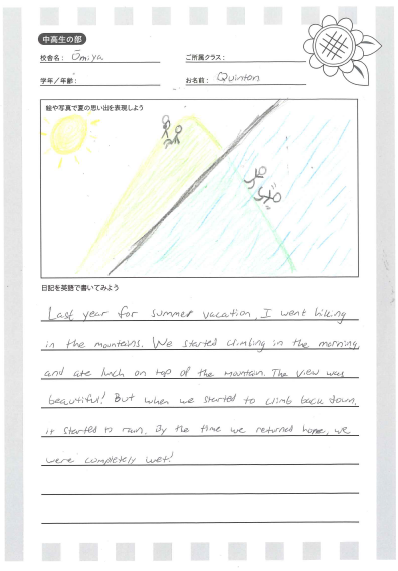 中高生の部
校舎名： Ōmiya
ご所属クラス：
学年／年齢：
お名前： Quinton
絵や写真で夏の思い出を表現しよう
日記を英語で書いてみよう
Last year for summer vacation, I went hiking
in the mountains. We started climbing in the morning,
and ate lunch on top of the mountain. The view was
beautiful! But when we started to climb back down,
it started to rain. By the time we returned home, we
were completely wet!